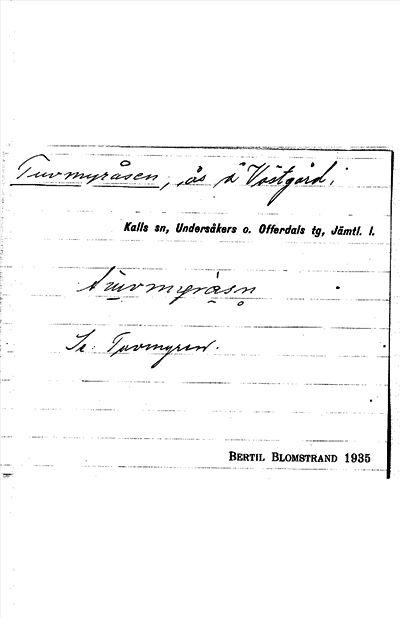 Tuvmyråsen, ås å Västgård,
Kalls sn, Undersåkers o. Offerdals tg, Jämtl. l.
tuvmyråsn
Se: Tuvmyren.
BERTIL BLOMSTRAND 1935